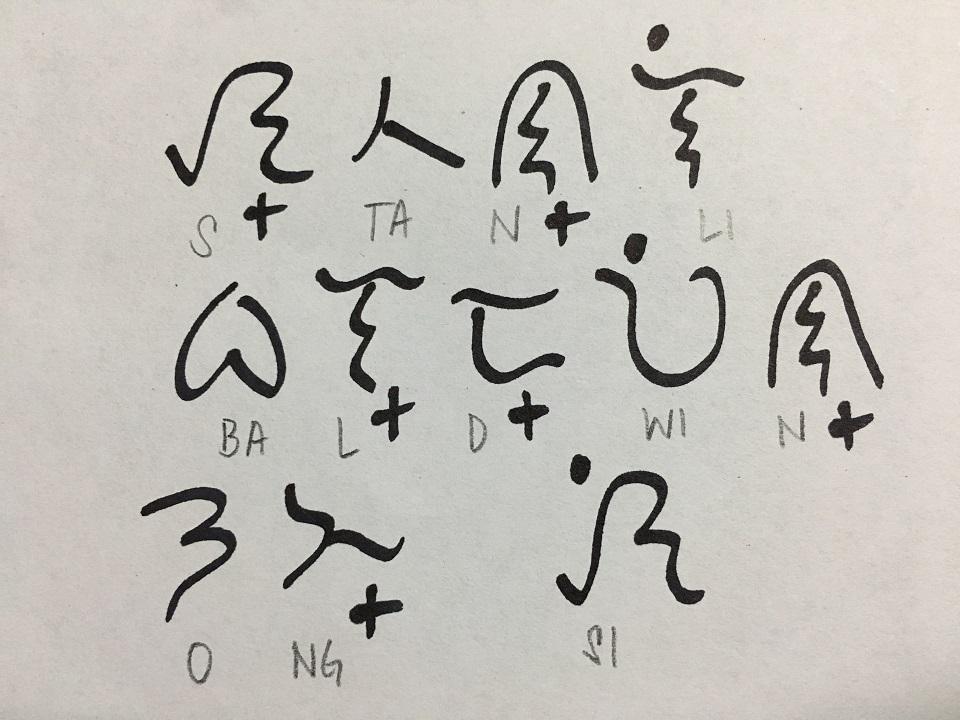 ᜐ᜔ᜆᜈ᜔ᜎᜒ
S TA N LI
ᜊᜎ᜔ᜇ᜔ᜏᜒᜈ᜔
BA L D WI N
ᜂᜅ᜔ ᜐᜒ
O NG SI